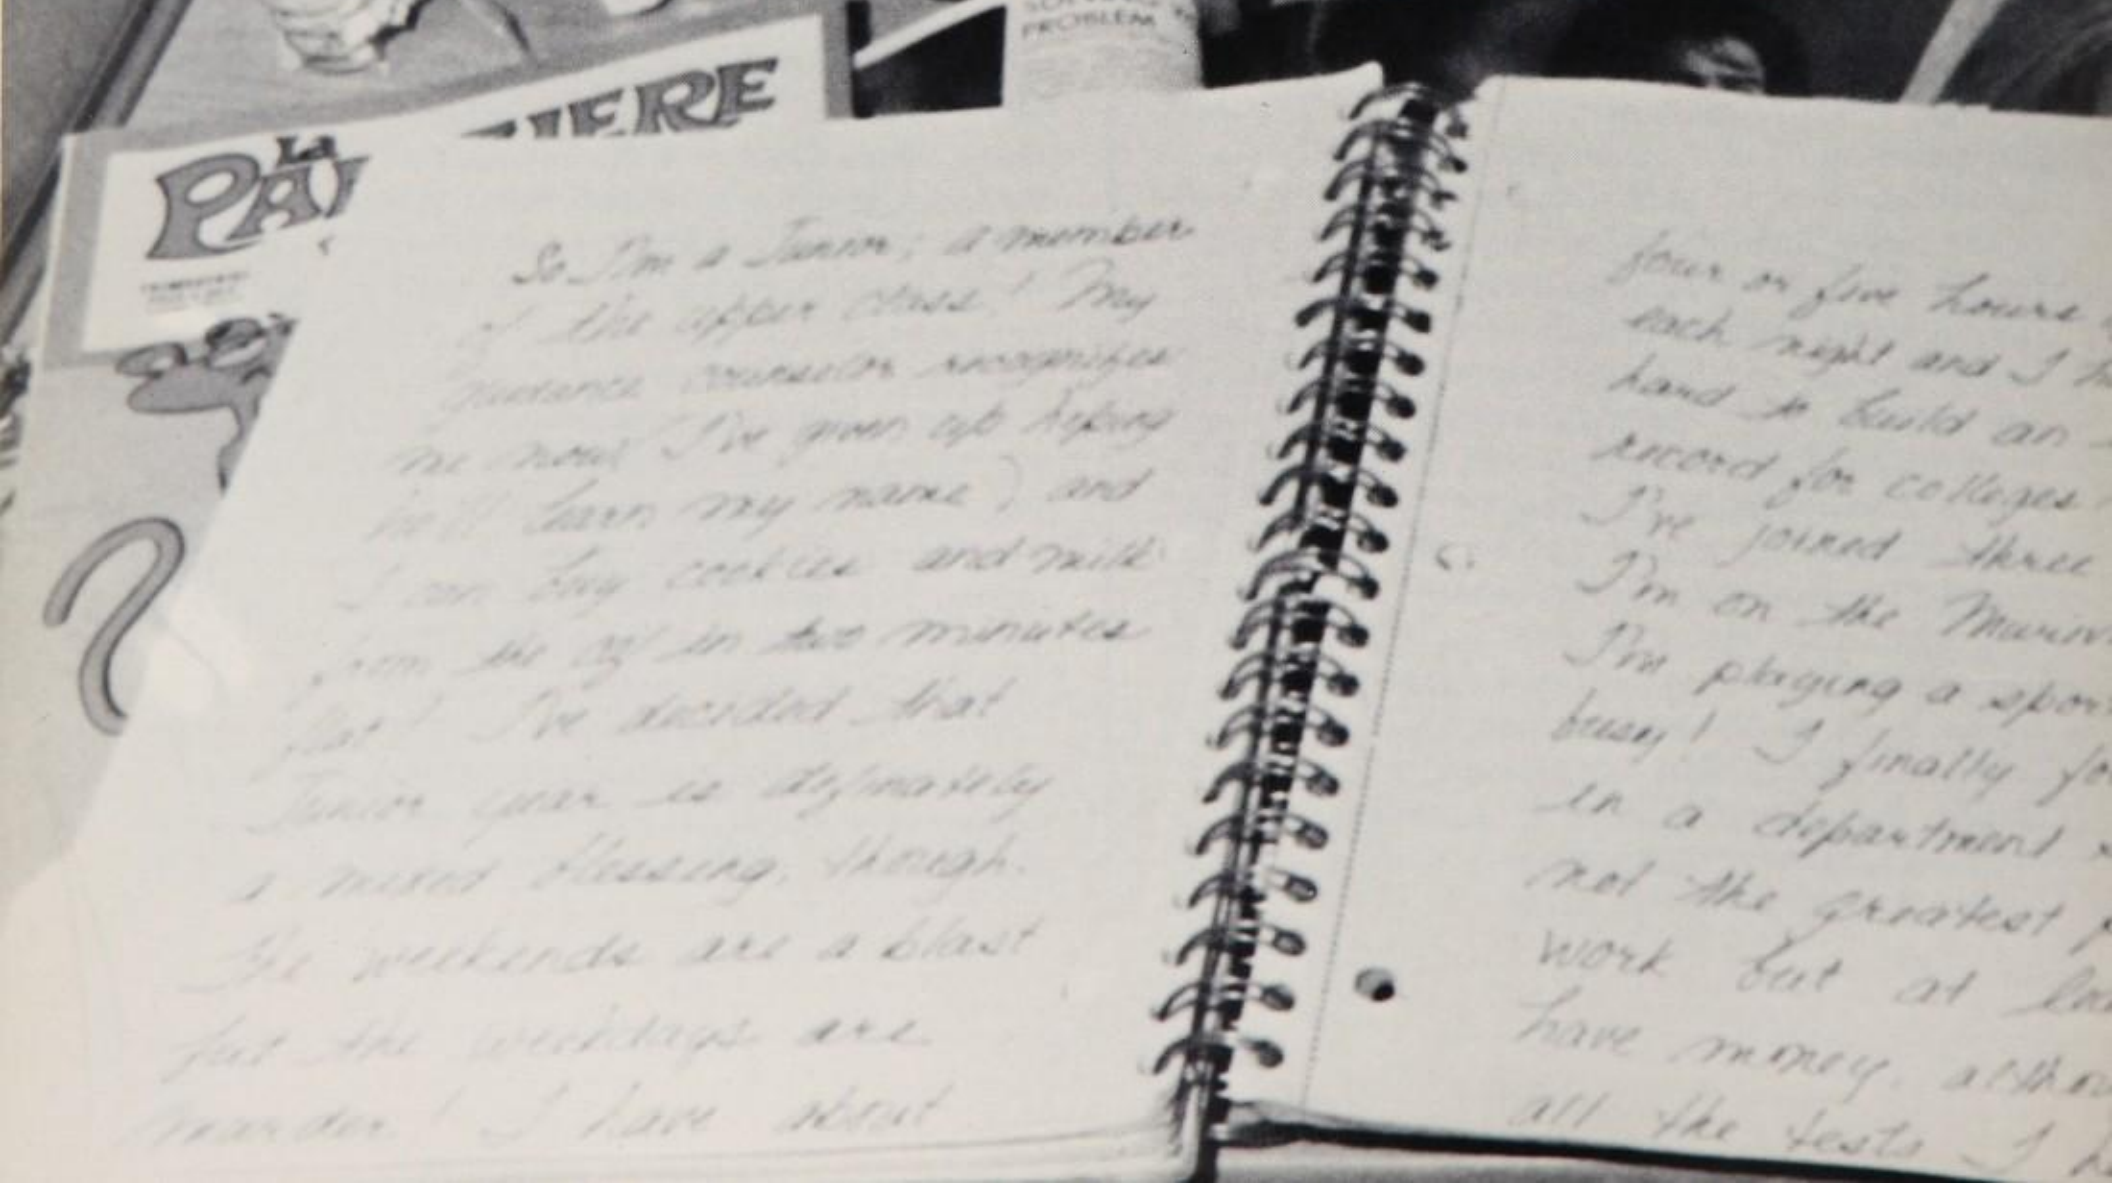 PROBLEM
La
PA
IERE
So I'm a Junior, a member
of the upper class! My
guidance counselor recognizes
me now( I've given up hoping
he'll learn my name) and
I can buy cookies and milk
from the caf in two minutes
flat! I've decided that
Junior year is definately
a mixed blessing, though.
The weekends are a blast
but the weekdays are
murder! I have about
four or five hours
each night and I
hard to build an
record for colleges
I've joined three
I'm on the
I'm playing a spor
busy! I finally fo
in a department
not the greatest
work but at lea
have money, altho
all the tests I h